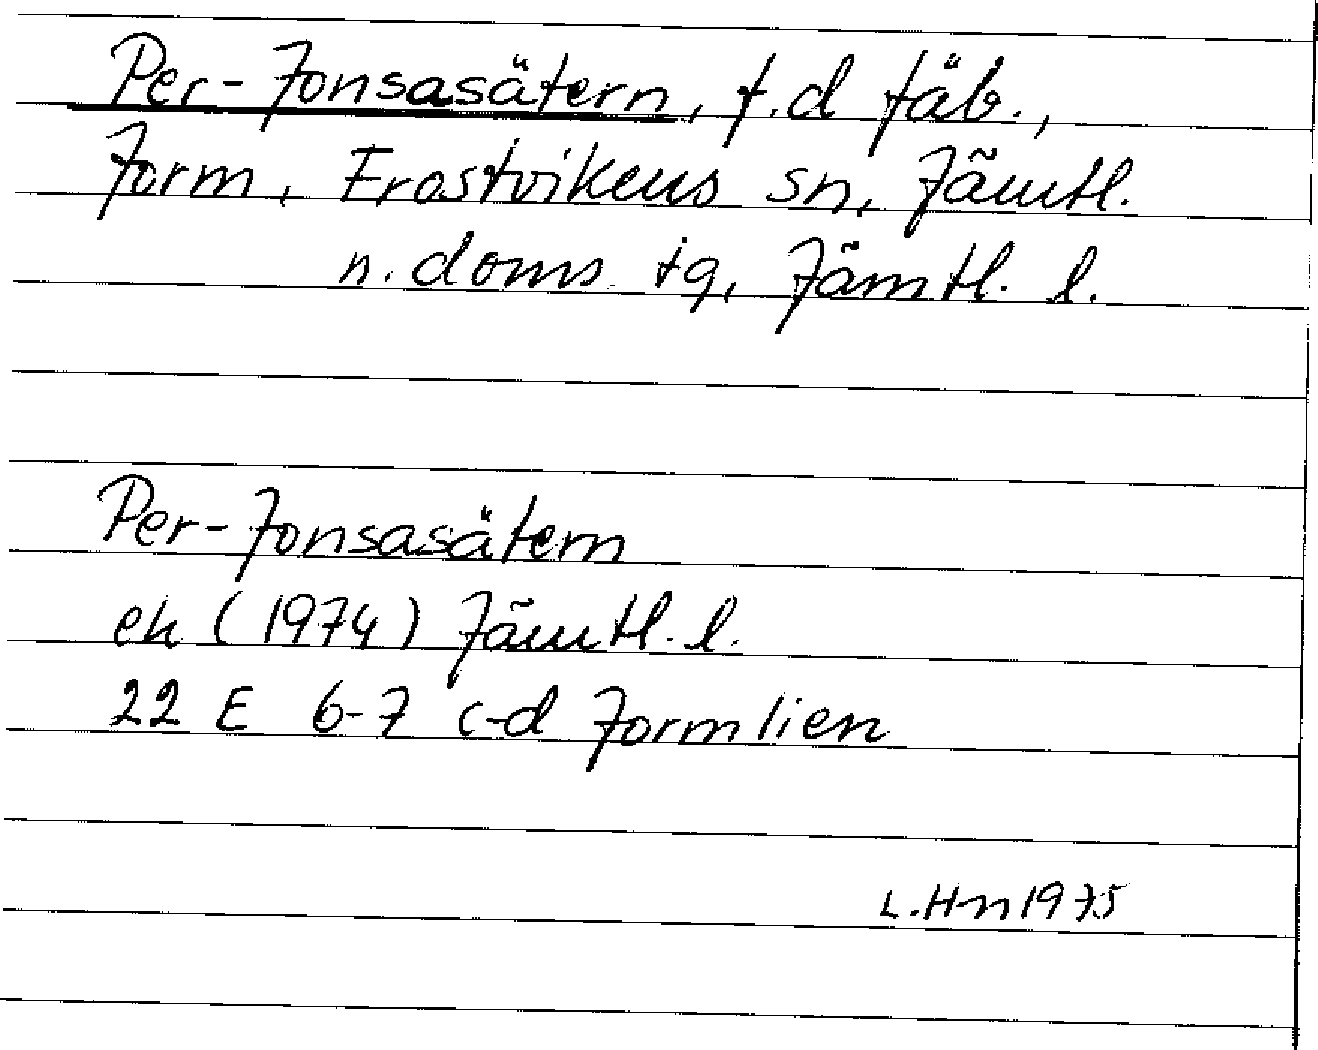 Per-Jonsasätern, f.d fäb.,
Jorm, Frostvikens sn, Jämtl.
n. doms tg, Jämtl. l.
Per-Jonsasätern
ek (1974) Jämtl. l.
22 E 6-7 c-d Jormlien
L.Hn 1975